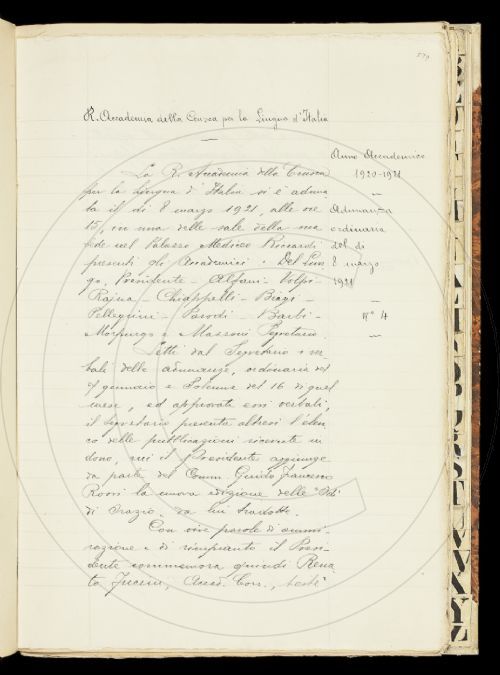 R. Accademia della Crusca per la Lingua d'Italia
Anno Accademico
1920-1921
Adunanza
ordinaria
del dì
8 marzo
1921
N° 4
La R. Accademia della Crusca
per la Lingua d'Italia si è aduna-
ta il dì 8 marzo 1921, alle ore
15, in una delle sale della sua
sede nel Palazzo Mediceo Riccardi
presenti gli Accademici: Del Lun-
go, Presidente - Alfani - Volpi -
Rajna - Chiappelli - Biagi -
Pellegrini - Parodi - Barbi -
Morpurgo e Mazzoni Segretario.
Letti dal Segretario i ver-
bali delle adunanze, ordinaria del
gennaio e Solenne del 16 di quel
mese, ed approvati essi verbali,
il Segretario presenta altresì l'elen-
co delle pubblicazioni ricevute in
dono, cui il Presidente aggiunge
da parte del Comm. Guido Francesco
Rossi la nuova edizione delle "Odi"
di Orazio, da lui tradotte.
Con vive parole di ammi-
razione e di rimpianto il Presi-
dente commemora quindi Rena-
to Fucini, Accad. Corr., testé